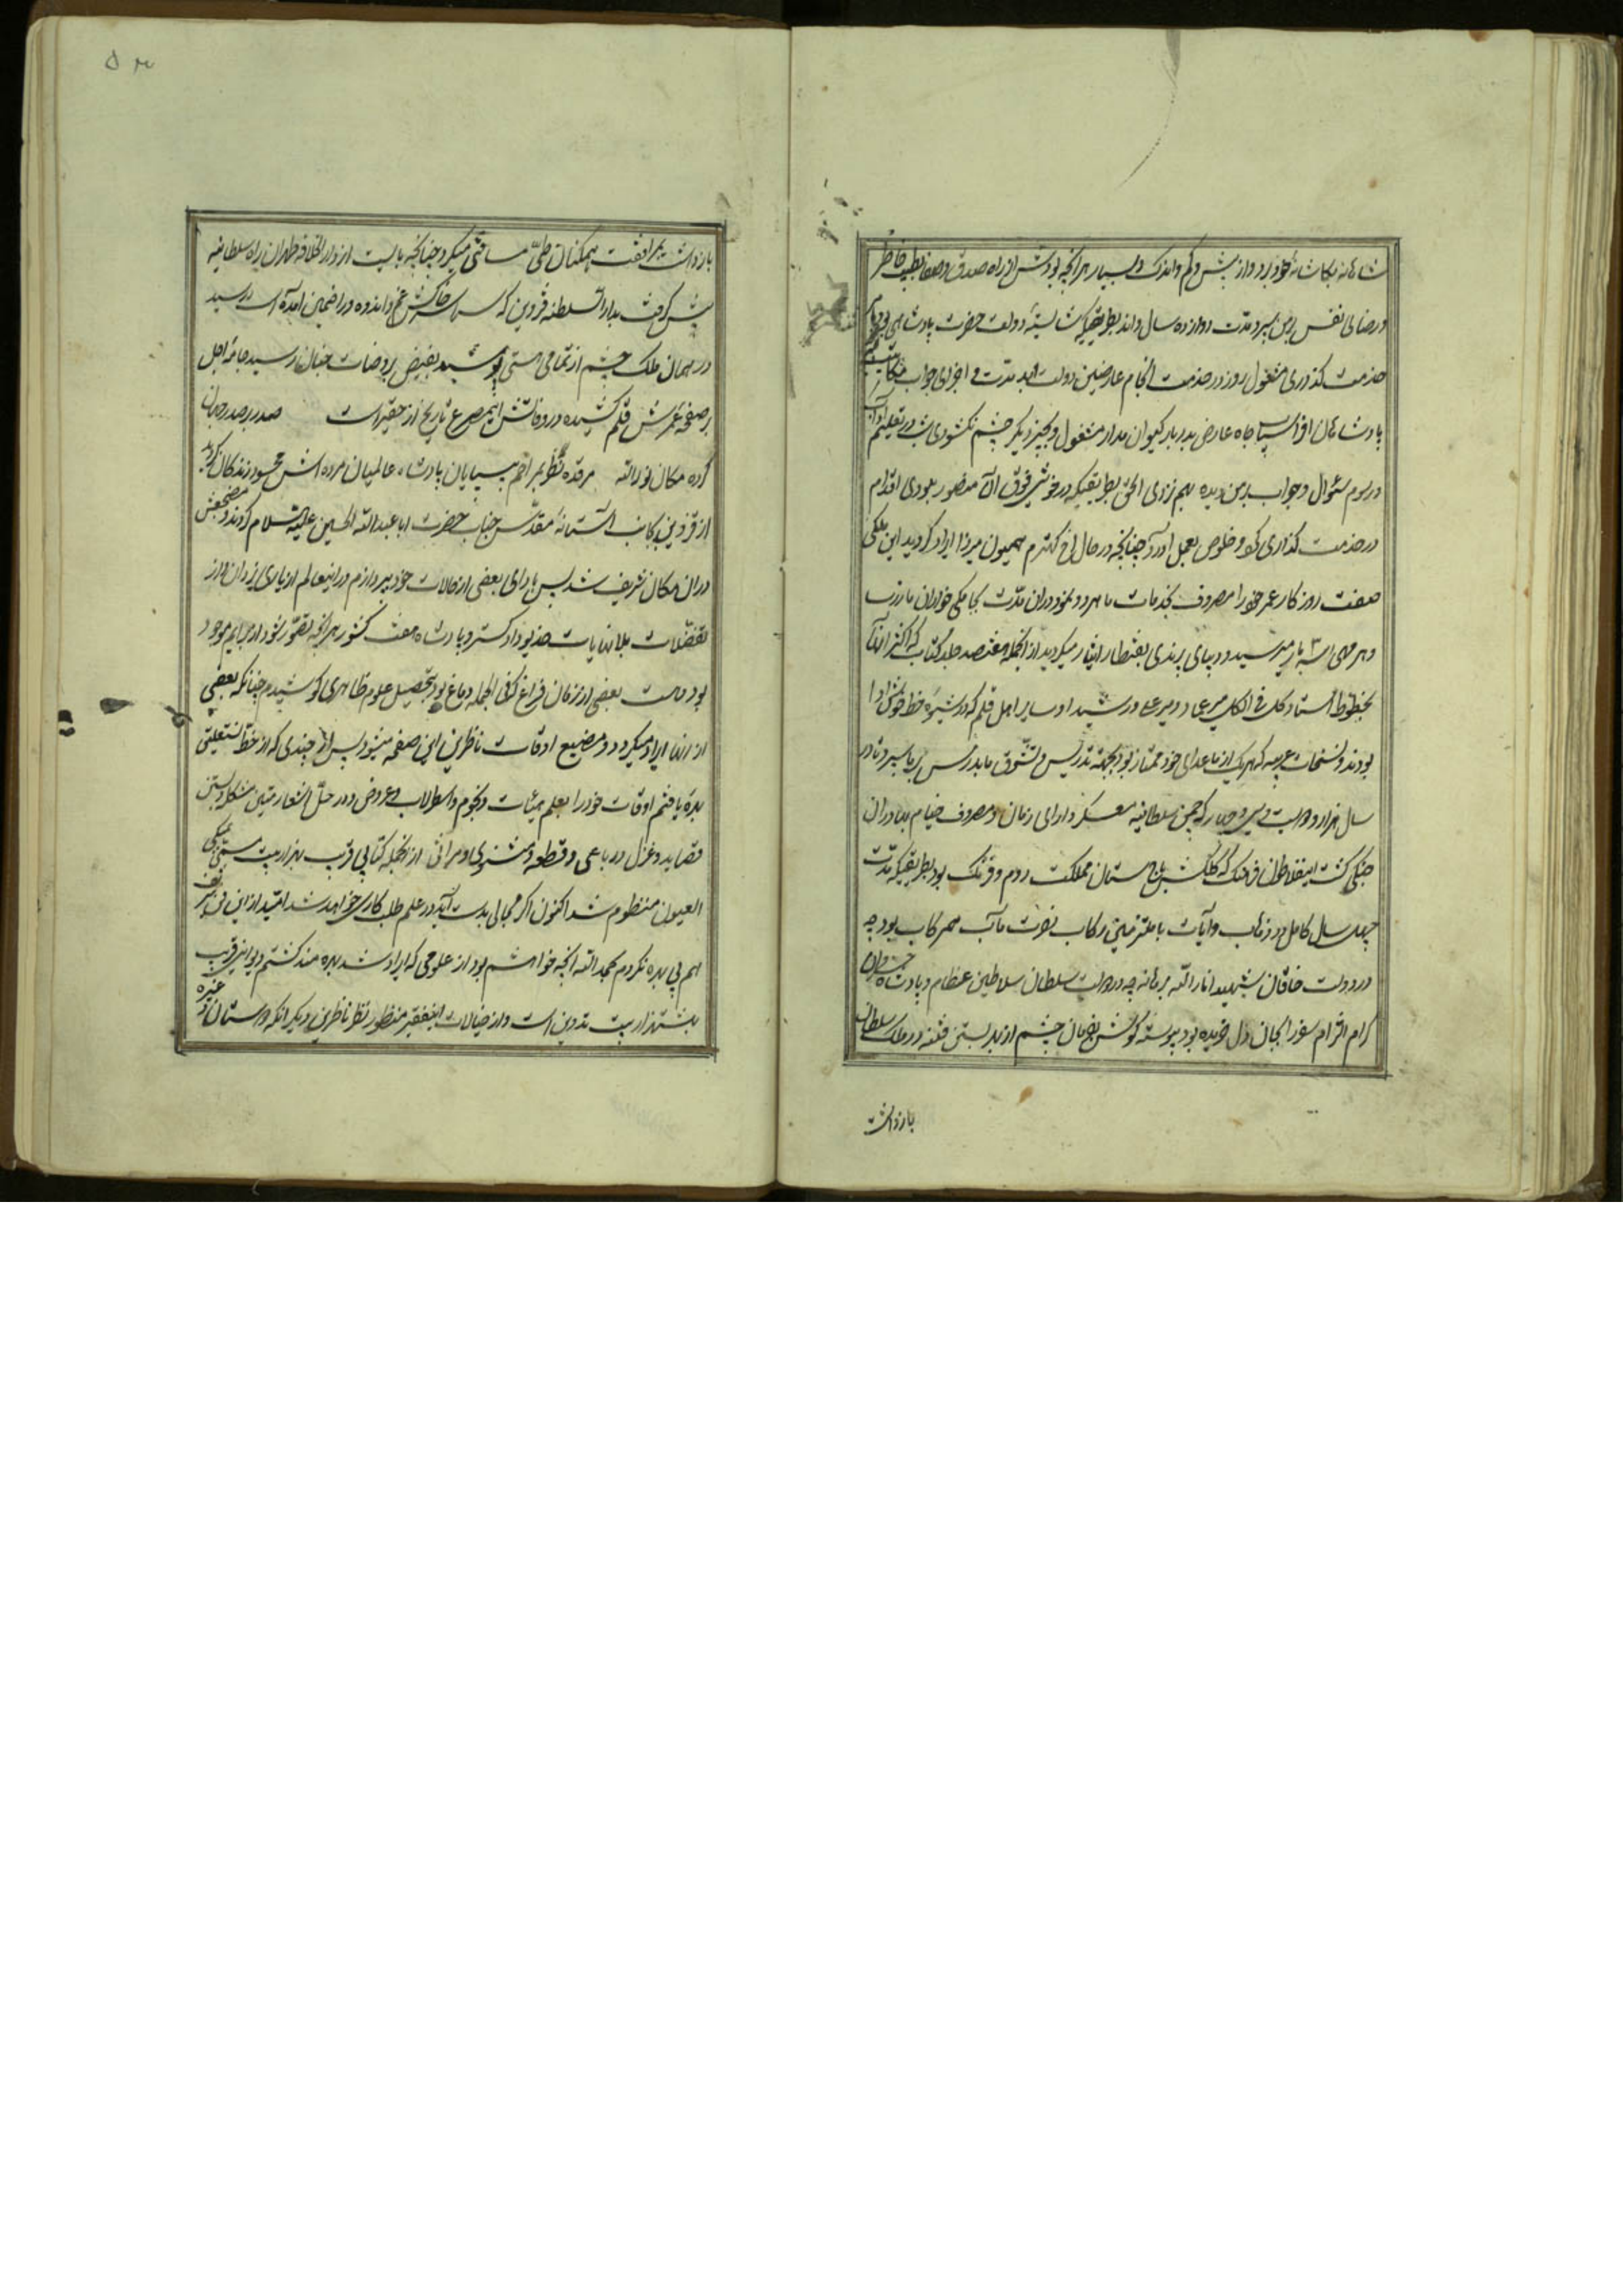 شاهانه بکاشانهٔ خود برد و از بیش و کم و اندک و بسیار هرآنچه بودش از راه صدق و صفا بطیب خاطر
و رضای نفس بمن سپرد مدت دوازده سال و اند بطریقیکه شایستهٔ دولت حضرت پادشاهی بود
خدمت گذاری مشغول روز در خدمت انجام عارضین دولت ابد مدت و اجرای جواب
پادشاهان افراسیاب جاه عارض بدربار کیوان مدار مشغول و بچیز دیگر چشم نگشودی شب در تعلیم آداب
و رسوم سئوال و جواب بمن دیده بهم نزدی الحق بطریقیکه در خورش فوق آن متصور نبودی اقدام
در خدمت گذاری کرد و خلوص بعمل آورد چنانچه در حال اخ اکرم همیون میرزا ایراد گردید این ملکی
صفت روزگار عمر خود را مصروف بخدمات ما هر دو نمود در آن مدت
و هر ماهی سه بار میرسید و در پای بقنطار ایثار میکردید از آنجمله هفتصد جلد کتاب که اکثر آنها
بخطوط استاد کل فی الکل میر عماد و میر علی و رشیدا و سایر اهل قلم که در شیوهٔ خط خوش ادا
بودند و نسخجات عربیه که هر یک از ماعدای خود ممتاز بود بجهة تدریس و تشوق ما بدرس بما سپرد تا در
سال هزار و دویست و سی و چهار که چمن سلطانیه معسکر دارای زمان و مصروف خیام بهادران
جنگی گشت اینفلاطون فرهنگ که کلکش باج ستان مملکت روم و فرنگ بود بطریقیکه مدت
چهل سال کامل در ذهاب و ایاب با ملتزمین رکاب نصرت مآب همرکاب بود چه
در دولت خاقان شهید انار الله برهانه چه در دولت سلطان سلاطین عظام و پادشاه خسروان
کرام التزام سفر را بجان و دل خریده بود پیوسته گوش بفرمان چشم از بد بستن فتنه در ملک سلطان
بازداشت
بازداشت بمرافقت همگنان طی مسافتی میکرد چنانچه بایست از دارالخلافه طهران براه سلطانیه
پیش گرفت بدارالسلطنه قزوین که سراسر خاکش غم و اندوه در آن ضمین آمده است رسید
در همان ملک چشم از تمامی هستی پوشید بفیض روضات جنان رسید جامهٔ اجل
بر صفحهٔ عمرش قلم کشیده در وفاتش این مصرع تاریخ از حقیر است صدر بصدر جنان
کرده مکان نور الله مرقده نظر بمراحم بی پایان پادشاه عالمیان مرده اش محسود زندگان گردید
از قزوین بجانب آستانهٔ مقدس جناب حضرت ابا عبدالله الحسین علیه السلام کردند و مضجعش
در آن مکان شریف شد پس بادای بعضی از حالات خود بپردازم در اینعالم از یاری یزدان و از
تفضلات بلانهایات خدیو دادگستر و پادشاه هفت کشور هر آنچه تصور شود از برایم موجود
بود و هست بعضی از زمان فراغ که فی الجمله دماغ بود بتحصیل علوم ظاهری کوشیدم چنانکه بعضی
از آنها ایراد میکردد و مضیع اوقات ناظرین این صفحه میشود پس از چندی که از خط نستعلیق
بهره یافتم اوقات خود را بعلم هیئات و نجوم و اسطرلاب و عروض و در حل اشعار متین مشکل و بستن
قصاید و غزل و رباعی و قطعه و مثنوی و مراثی از آنجمله کتابی قرب بهزار بیت مسمی بمبکی
العیون منظوم شد اکنون اگر مجالی بدست آید در علم طب کاری خواهد شد امید از این فن شریف
هم بی بهره نگردم بحمد الله آنچه خواهشم بود از علومی که ایراد شد بهره مند گشتم دیوانی قرب
بشتهزار بیت تدوین است و از خیالات اینفقیر منظور نظر ناظرین دیگر آنکه دوستان و غیره
۵۳